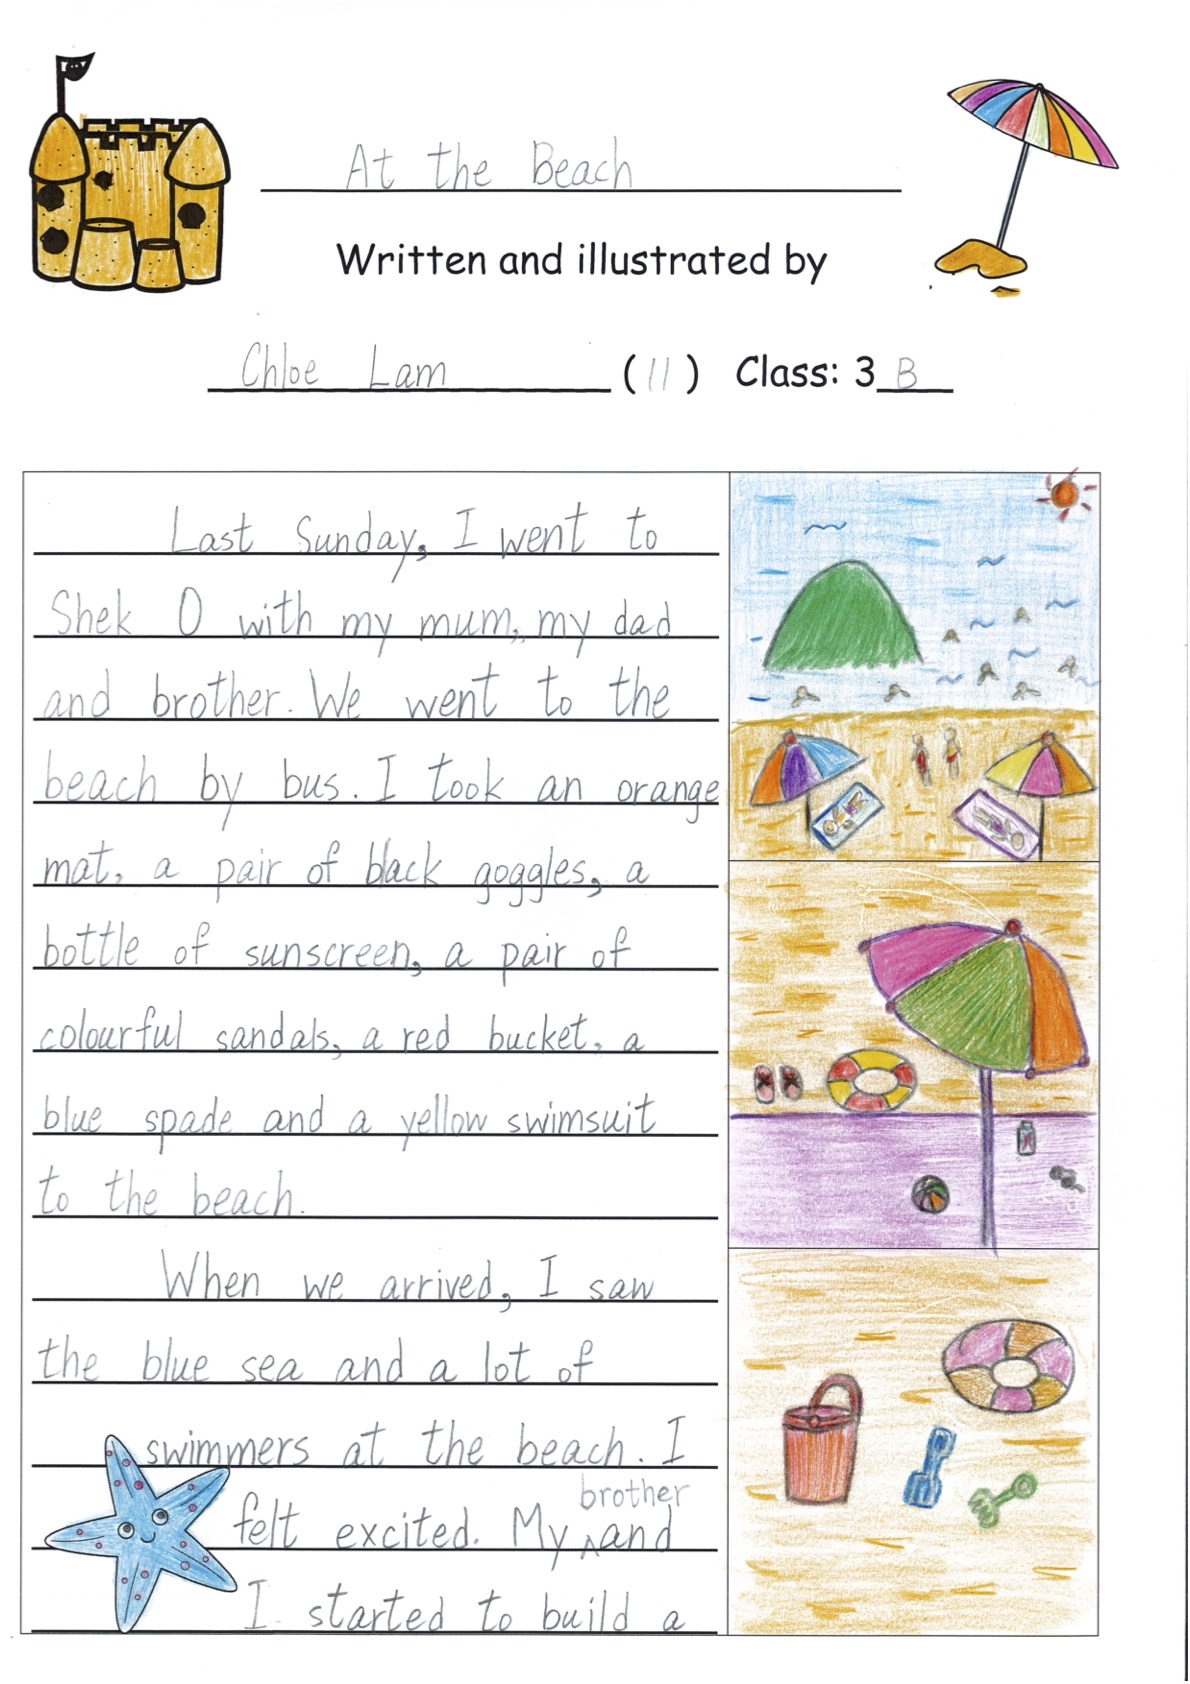 At the Beach
Written and illustrated by
Chloe Lam (11) Class: 3B
Last Sunday, I went to
Shek O with my mum, my dad
and brother. We went to the
beach by bus. I took an orange
mat, a pair of black goggles, a
bottle of sunscreen, a pair of
colourful sandals, a red bucket, a
blue spade and a yellow swimsuit
to the beach.
When we arrived, I saw
the blue sea and a lot of
swimmers at the beach. I
felt excited. My brother and
I started to build a